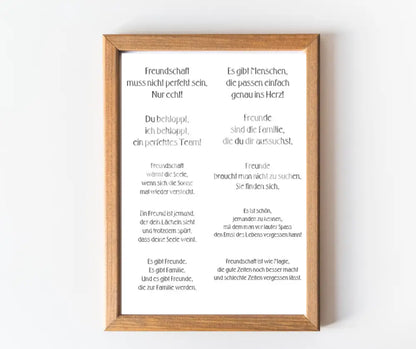 Freundschaft
muss nicht perfekt sein,
Nur echt!
Es gibt Menschen,
die passen einfach
genau ins Herz!
Du bekloppt,
ich bekloppt,
ein perfektes Team!
Freunde
sind die Familie,
die du dir aussuchst.
Freundschaft
wärmt die Seele,
wenn sich die Sonne
mal wieder versteckt.
Freunde
braucht man nicht zu suchen,
Sie finden sich.
Ein Freund ist jemand,
der dein Lächeln sieht
und trotzdem spürt,
dass deine Seele weint.
Es ist schön,
jemanden zu kennen,
mit dem man vor lauter Spass
den Ernst des Lebens vergessen kann!
Es gibt Freunde.
Es gibt Familie.
Und es gibt Freunde,
die zur Familie werden.
Freundschaft ist wie Magie,
die gute Zeiten noch besser macht
und schlechte Zeiten vergessen lässt.